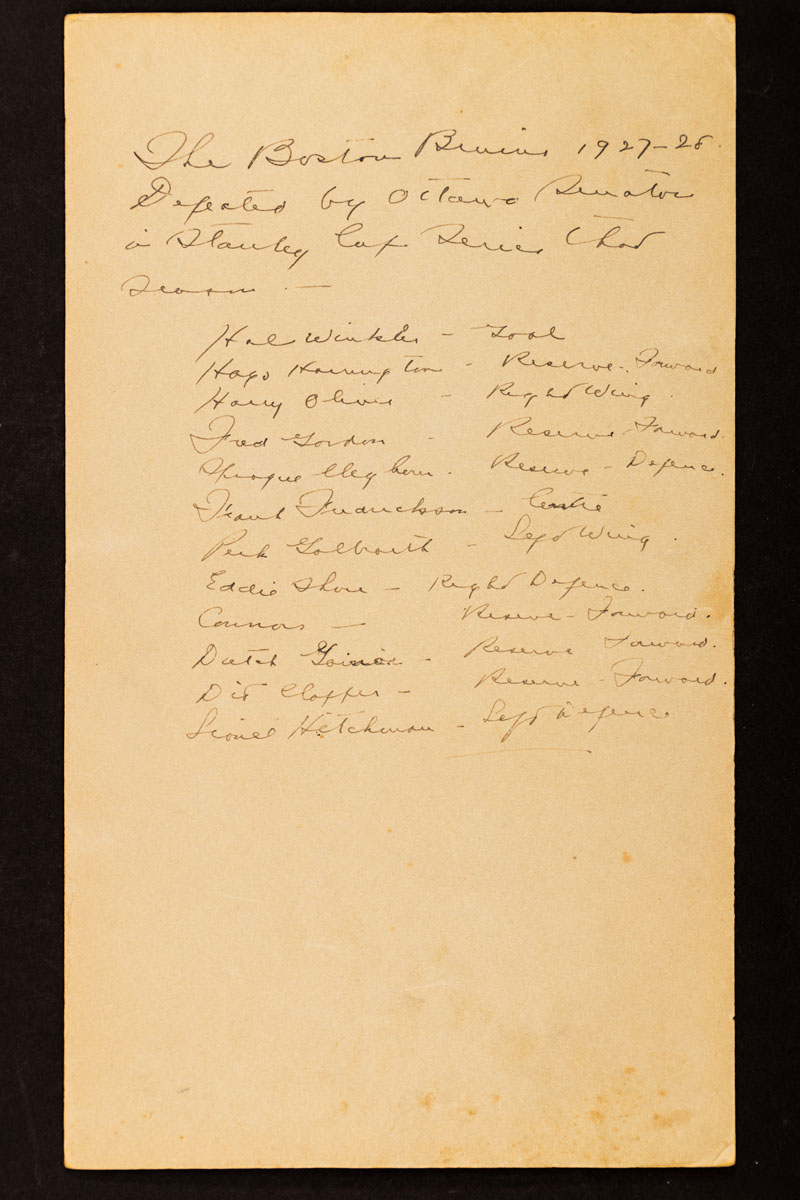 The Boston Bruins 1927-28.
Defeated by Ottawa Senators
in Stanley Cup Series that
season. —
Hal Winkler - Goal
Hago Harrington - Reserve - Forward
Harry Oliver - Right Wing.
Fred Gordon - Reserve Forward.
Sprague Cleghorn. Reserve - Defence.
Frank Fredrickson - Centre
Perk Galbraith - Left Wing.
Eddie Shore - Right Defence.
Connors — Reserve - Forward.
Dutch Gainor - Reserve Forward.
Dit Clapper - Reserve - Forward.
Lionel Hitchman - Left Defence